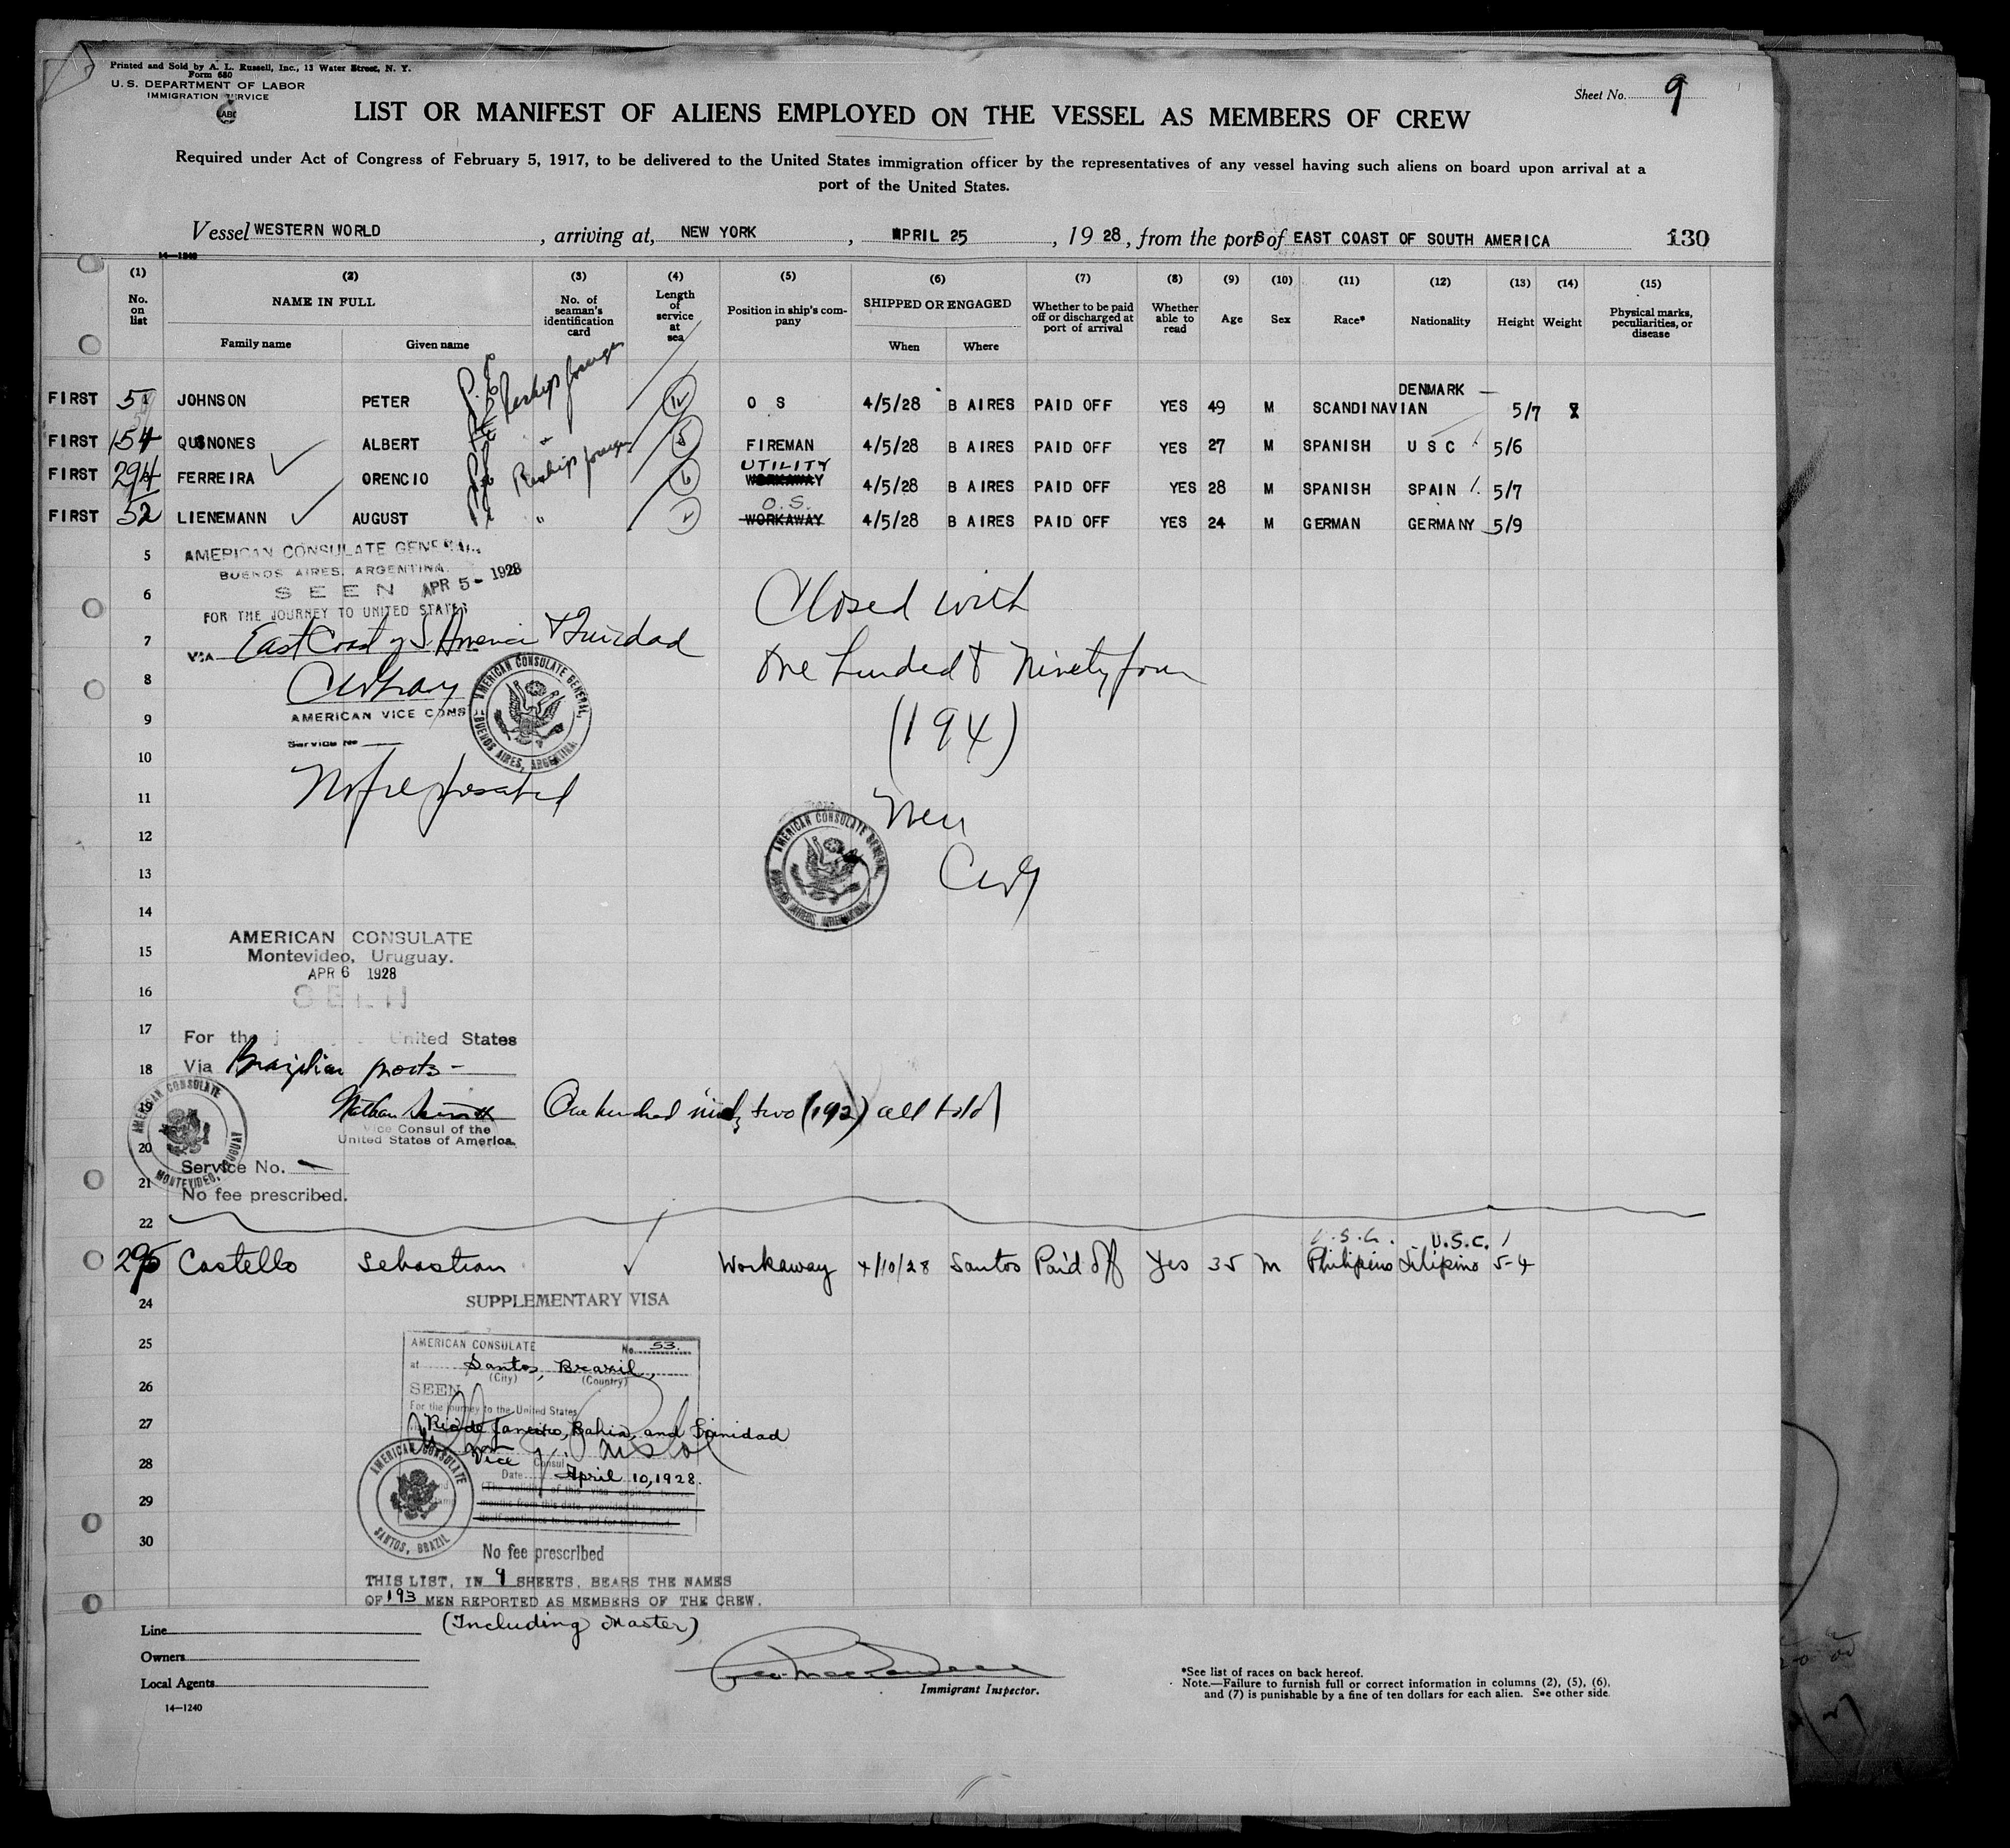 Printed and Sold by A. L. Russell, Inc., 13 Water Street, N. Y.
Form 680
U. S. DEPARTMENT OF LABOR
IMMIGRATION SERVICE
Sheet No. 9
LIST OR MANIFEST OF ALIENS EMPLOYED ON THE VESSEL AS MEMBERS OF CREW
Required under Act of Congress of February 5, 1917, to be delivered to the United States immigration officer by the representatives of any vessel having such aliens on board upon arrival at a
port of the United States.
Vessel WESTERN WORLD, arriving at, NEW YORK, APRIL 25, 19 28, from the ports of EAST COAST OF SOUTH AMERICA 130
14—1240
(1) (2) (3) (4) (5) (6) (7) (8) (9) (10) (11) (12) (13) (14) (15)
No. on list NAME IN FULL Family name Given name No. of seaman's identification card Length of service at sea Position in ship's company SHIPPED OR ENGAGED When Where Whether to be paid off or discharged at port of arrival Whether able to read Age Sex Race* Nationality Height Weight Physical marks, peculiarities, or disease
FIRST 51 JOHNSON PETER Reship foreign O S 4/5/28 B AIRES PAID OFF YES 49 M SCANDINAVIAN DENMARK 5/7
FIRST 154 QUSNONES ALBERT " 5 FIREMAN 4/5/28 B AIRES PAID OFF YES 27 M SPANISH U S C 5/6
FIRST 294 FERREIRA ORENCIO Reship foreign 6 UTILITY WORKAWAY 4/5/28 B AIRES PAID OFF YES 28 M SPANISH SPAIN 5/7
FIRST 52 LIENEMANN AUGUST " O.S. WORKAWAY 4/5/28 B AIRES PAID OFF YES 24 M GERMAN GERMANY 5/9
5 AMERICAN CONSULATE GENERAL
BUENOS AIRES, ARGENTINA.
6 SEEN APR 5 - 1928
FOR THE JOURNEY TO UNITED STATES
7 VIA East Coast of S. America & Trinidad
8
9 AMERICAN VICE CONS
Service No
10
11 No fee prescribed
AMERICAN CONSULATE GENERAL, BUENOS AIRES, ARGENTINA
Closed with
One hundred & Ninety four
(194)
Men
CWG
AMERICAN CONSULATE GENERAL
12
13
14
AMERICAN CONSULATE
15 Montevideo, Uruguay.
APR 6 1928
16 SEEN
17 For the j United States
18 Via Brazilian ports -
19 Nathan One hundred ninety two (192) all told
Vice Consul of the
20 United States of America.
Service No.
21 No fee prescribed.
AMERICAN CONSULATE MONTEVIDEO, URUGUAY
22
295 Castello Sebastian Workaway 4/10/28 Santos Paid off Yes 35 M U.S.C. Philipino U.S.C. Filipino 5-4
24 SUPPLEMENTARY VISA
25 AMERICAN CONSULATE No. 53.
at Santos, Brazil,
(City) (Country)
26 SEEN
For the journey to the United States
27 Rio de Janeiro, Bahia, and Trinidad
28 Vice Consul
Date April 10, 1928.
29 (The validity of this visa expires twelve
months from this date, provided the passport
itself continues to be valid for that period.
AMERICAN CONSULATE SANTOS, BRAZIL
30
No fee prescribed
THIS LIST, IN 9 SHEETS, BEARS THE NAMES
OF 193 MEN REPORTED AS MEMBERS OF THE CREW.
(Including Master)
Line
Owners
Local Agents
14—1240
Immigrant Inspector.
*See list of races on back hereof.
Note.—Failure to furnish full or correct information in columns (2), (5), (6),
and (7) is punishable by a fine of ten dollars for each alien. See other side.